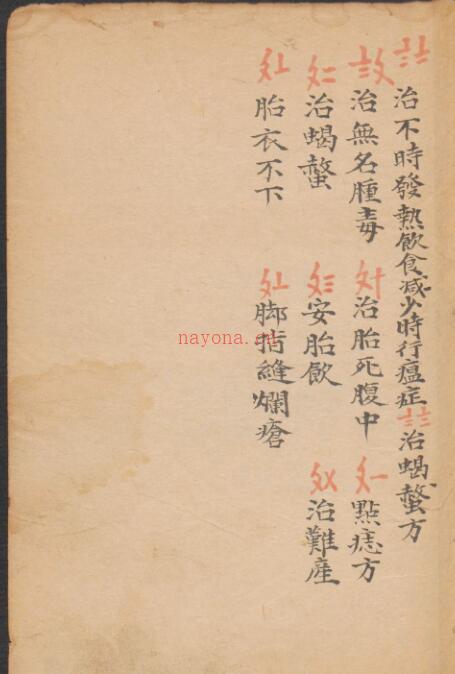 治不時發熱飲食減少時行瘟症 治蝎螫方
治無名腫毒 〩十 治胎死腹中 〩一 點痣方
〩二 治蝎螫 〩三 安胎飲 〩〤 治難産
胎衣不下 脚指縫爛瘡
nayona.cn